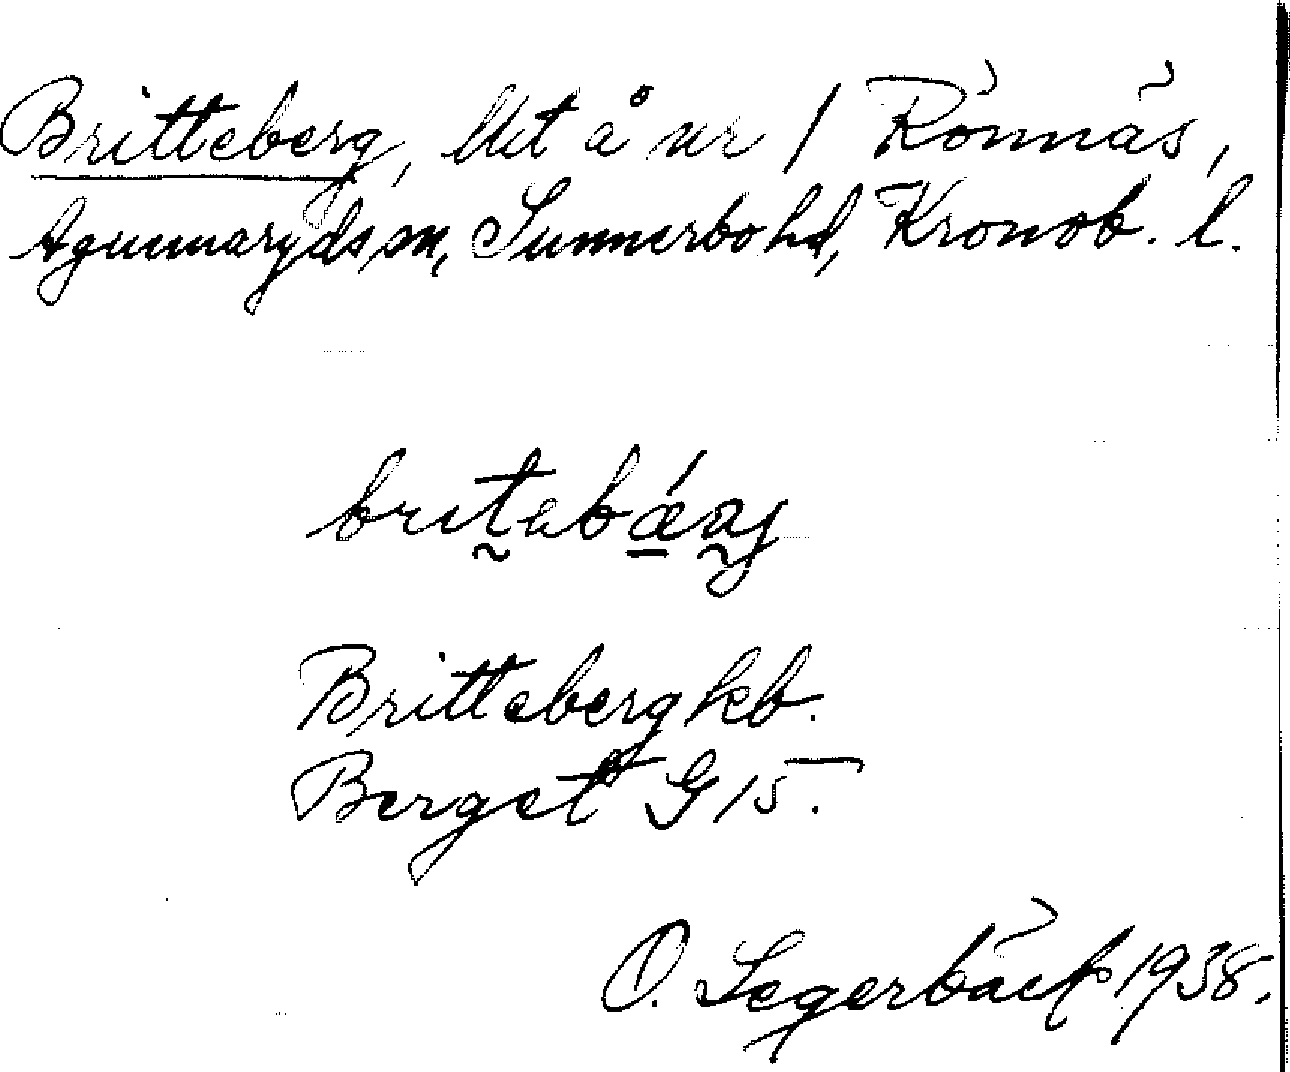 Britteberg, lht å nr 1 Rönnäs,
Agunnaryds sn, Sunnerbo hd, Kronob. l.
britabärj
Britteberg kb.
Berget G 15.
O. Segerbäck 1938.